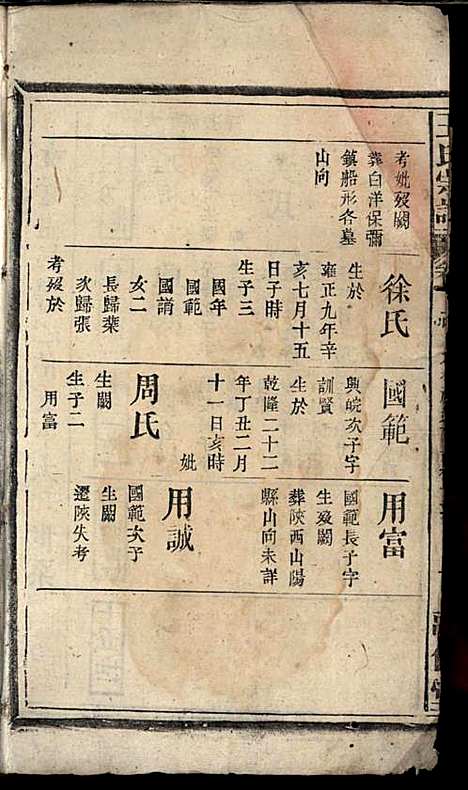 王氏宗譜
考妣歿闕
葬白洋保彌
鎮船形各墓
山向
徐氏
生於
雍正九年辛
亥七月十五
日子時
生子三
國年
國範
國誚
女二
長歸葉
次歸張
考歿於
國範
興皖次子字
訓賢
生於
乾隆二十二
年丁丑二月
十一日亥時
妣
周氏
生闕
生子二
用富
用富
國範長子字
生歿闕
葬陝西山陽
縣山向未詳
用誠
國範次子
生闕
遷陝失考